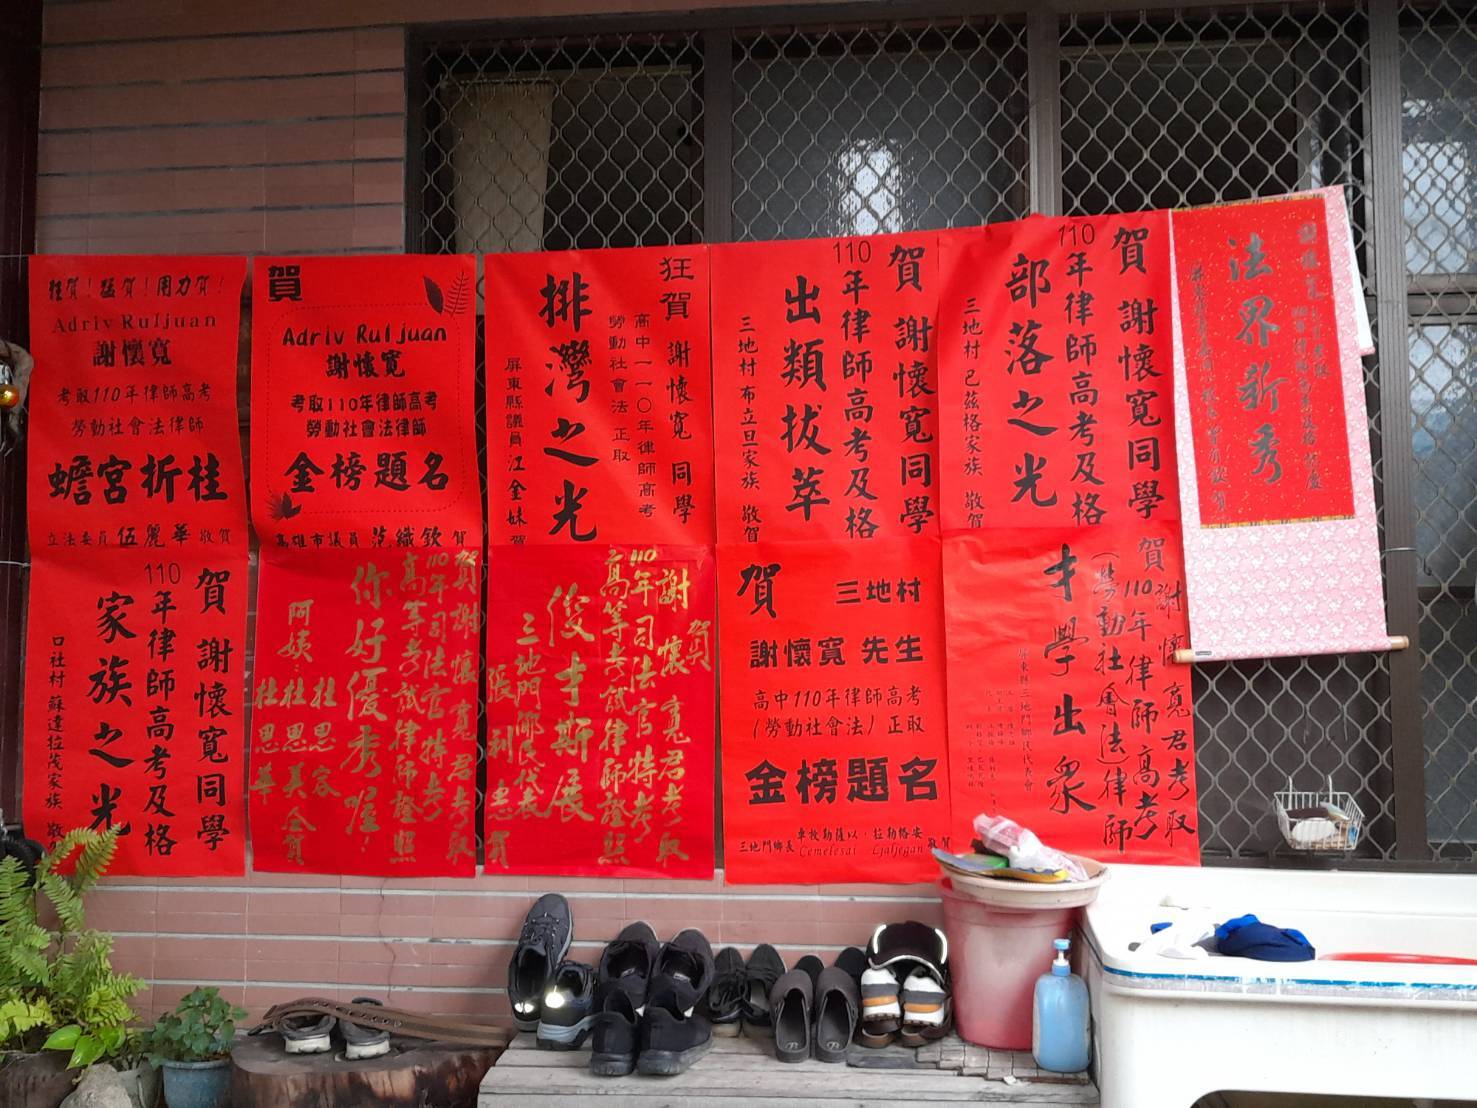 狂賀！猛賀！用力賀！
Adriv Ruljuan
謝懷寬
考取110年律師高考
勞動社會法律師
蟾宮折桂
立法委員 伍麗華 敬賀
賀
Adriv Ruljuan
謝懷寬
考取110年律師高考
勞動社會法律師
金榜題名
高雄市議員 范織欽 賀
狂賀 謝懷寬 同學
高中一一〇年律師高考
勞動社會法 正取
排灣之光
屏東縣議員江金妹 賀
賀 謝懷寬同學
110年律師高考及格
出類拔萃
三地村 布立旦家族 敬賀
賀 謝懷寬同學
110年律師高考及格
部落之光
三地村 巴茲格家族 敬賀
法界新秀
賀 謝懷寬同學
110年律師高考及格
家族之光
口社村 蘇達拉茂家族 敬賀
賀謝懷寬君考取
110年司法官特考
高等考試律師證照
你好優秀喔！
阿姨：杜思容
杜思美
杜思華 仝賀
賀
謝懷寬君考取
110年司法官特考
高等考試律師證照
俊才斯展
三地門鄉民代表
張利忠賀
賀 三地村
謝懷寬 先生
高中110年律師高考
（勞動社會法）正取
金榜題名
三地門鄉長 車牧勒薩以·拉勒格安 敬賀
Cemelesai Ljaljegan
賀 謝懷寬君考取
110年律師高考
（勞動社會法）律師
才學出眾
屏東縣三地門鄉民代表會